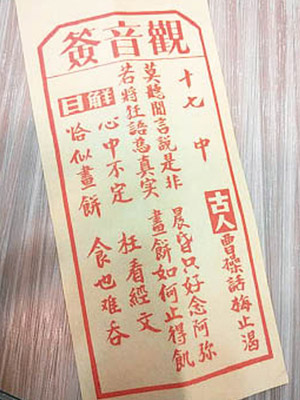 觀音簽
十七 中
古人 曹操話梅止渴
莫聽閒言說是非 晨昏只好念阿弥
若將狂語為真实 畫餅如何止得飢
解曰
心中不定 枉看經文
恰似畫餅 食也难吞